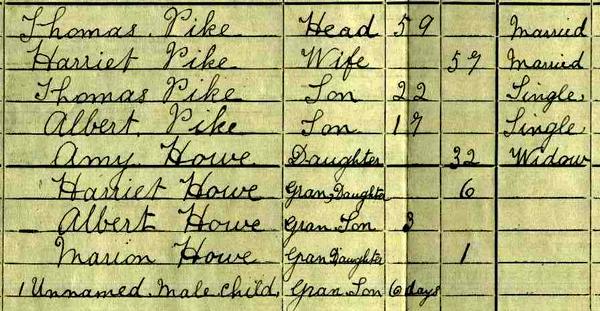 Thomas Pike Head 59 Married
Harriet Pike Wife 57 Married
Thomas Pike Son 22 Single,
Albert Pike Son 17 Single,
Amy Howe Daughter 32 Widow
Harriet Howe Gran,Daughter 6
Albert Howe Gran Son 3
Marion Howe Gran Daughter 1
1 Unnamed Male Child, Gran Son 6 days